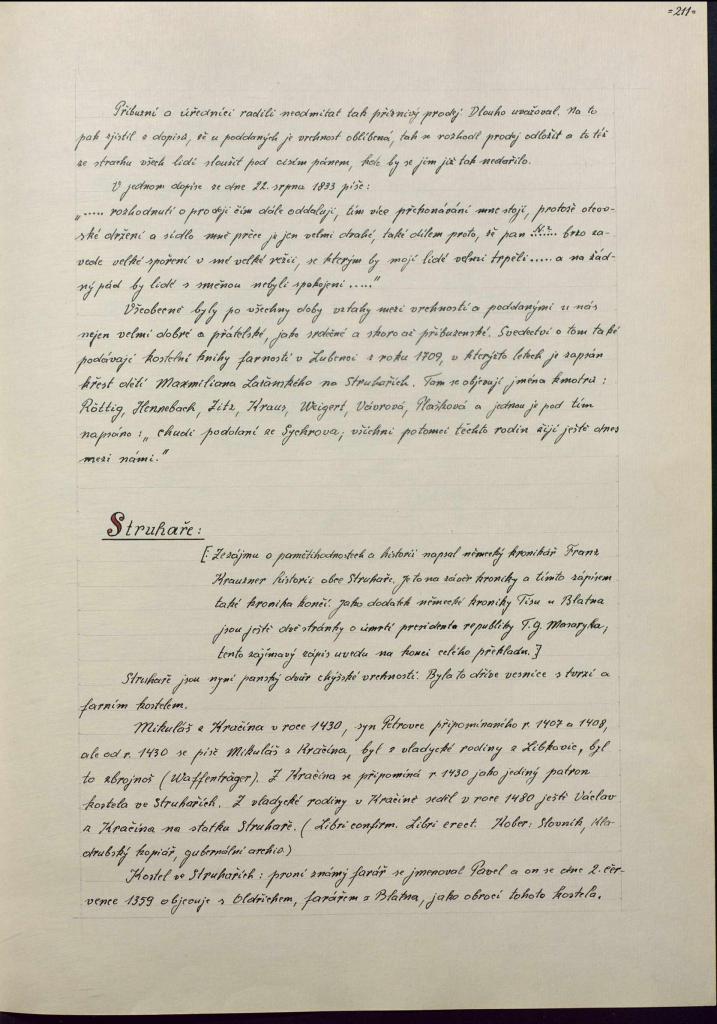 =211=
Příbuzní a úředníci radili neodmítat tak příznivý prodej. Dlouho uvažoval. Na to
pak zjistil z dopisů, že u poddaných je vrchnost oblíbená, tak se rozhodl prodej odložit a to též
ze strachu všech lidí sloužit pod cizím pánem, kde by se jim již tak nedařilo.
V jednom dopise ze dne 22. srpna 1833 píše:
„..... rozhodnutí o prodeji čím dále oddaluji, tím více překonávání mne stojí, protože otcov-
ské držení a sídlo mně přece je jen velmi drahé, také dílem proto, že pan N.? brzo za-
vede velké spoření v mé velké režii, se kterým by moji lidé velmi trpěli ..... a na žád-
ný pád by lidé s směnou nebyli spokojeni ....."
Všeobecně byly po všechny doby vztahy mezi vrchností a poddanými u nás
nejen velmi dobré a přátelské, jako srdečné a skoro až příbuzenské. Svedectví o tom také
podávají kostelní knihy farnosti v Lubenci z roku 1709, v kterýsto letech je zapsán
křest dětí Maxmiliana Lažánského na Struhařích. Tam se objevují jména kmotrů:
Röttig, Hennebach, Zitz, Kraus, Weigert, Vávrová, Plašková a jednou je pod tím
napsáno: „chudí poddaní ze Sychrova; všichni potomci těchto rodin žijí ještě dnes
mezi námi."
Struhaře:
[: Ze zájmu o pamětihodnostech a historii napsal německý kronikář Franz
Krauzner historii obce Struhaře. Je to na závěr kroniky a tímto zápisem
také kronika končí. Jako dodatek německé kroniky Tisu u Blatna
jsou ještě dvě stránky o úmrtí presidenta republiky T.G. Masaryka;
tento zajímavý zápis uvedu na konci celého překladu.]
Struhaře jsou nyní panský dvůr chýšské vrchnosti. Byla to dříve vesnice s tvrzí a
farním kostelem.
Mikuláš z Kračína v roce 1430, syn Petrovce připomínaného r. 1407 a 1408,
ale od r. 1430 se píše Mikuláš z Kračína, byl z vladycké rodiny z Libkovic, byl
to zbrojnoš (Waffenträger). Z Kračína se připomíná r. 1430 jako jediný patron
kostela ve Struhařích. Z vladycké rodiny v Kračíně seděl v roce 1480 ještě Václav
z Kračína na statku Struhaře. (Libri confirm. Libri erect. Kober: Slovník, Kla-
drubský kopiář, gubernální archiv.)
Kostel ve Struhařích: první známý farář se jmenoval Pavel a on se dne 2. čer-
vence 1359 objevuje s Oldřichem, farářem z Blatna, jako obročí tohoto kostela.